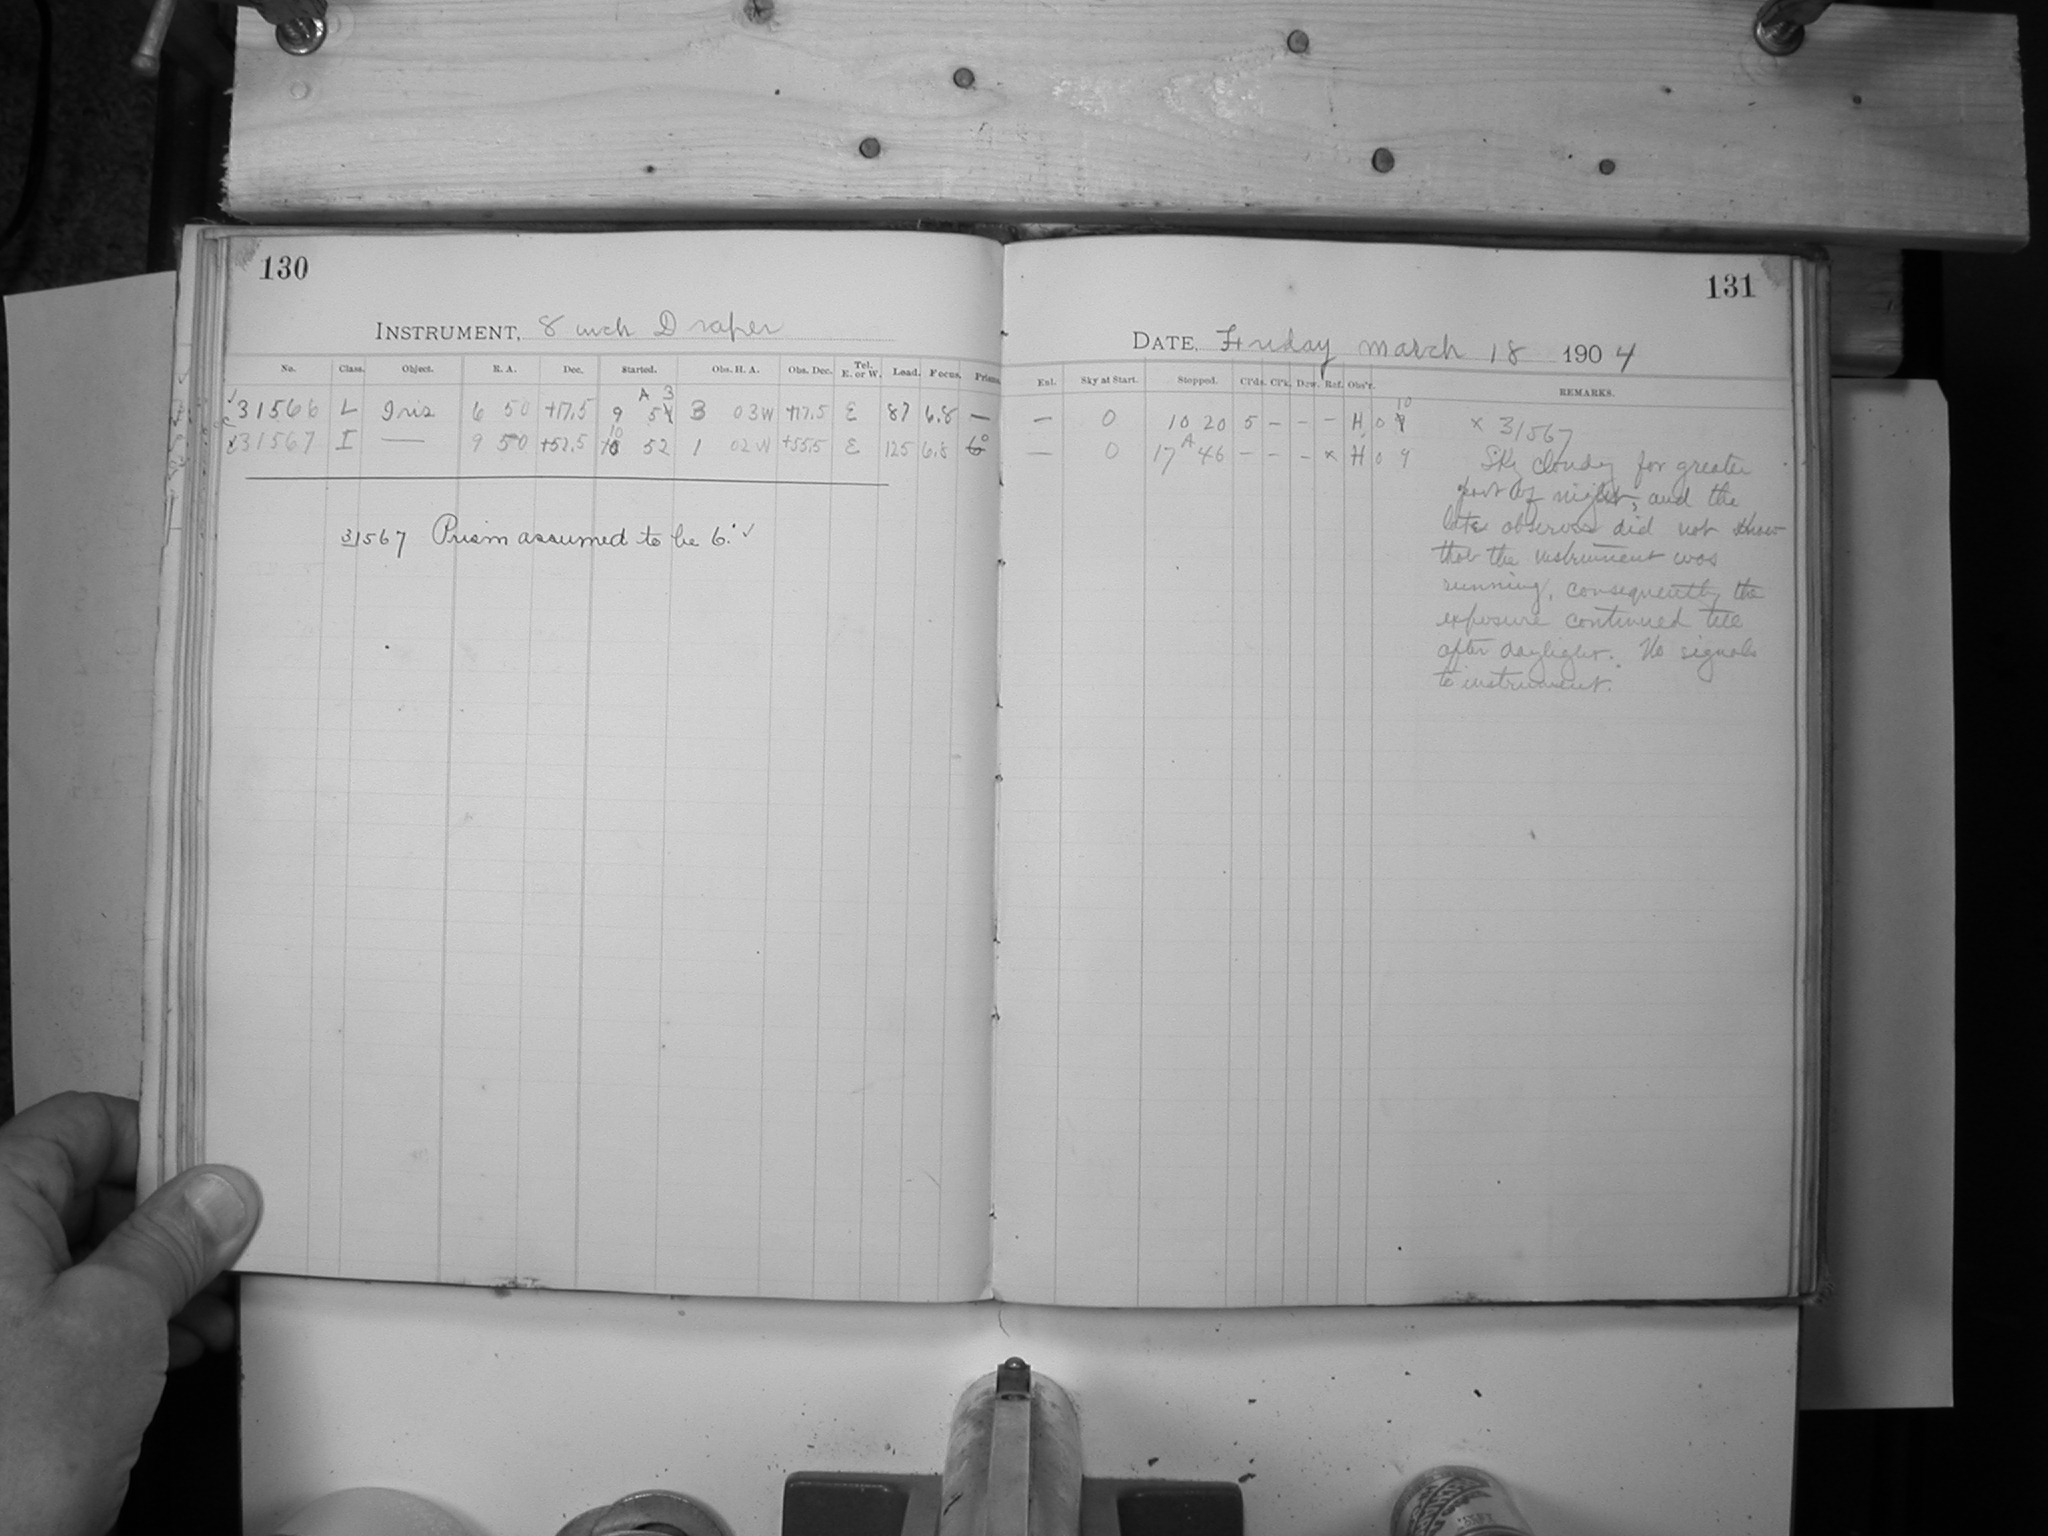 130
INSTRUMENT, 8 inch Draper
No. Class. Object. R. A. Dec. Started. Obs. H. A. Obs. Dec. Tel. E. or W. Load. Focus. Prisms.
A 3
31566 L Iris 6 50 +17.5 9 54 3 03W +17.5 E 87 6.8 —
10
31567 I — 9 50 +52.5 52 1 02W +55.5 E 125 6.8 6°
31567 Prism assumed to be 6.° ✓
131
DATE, Friday March 18 1904
Enl. Sky at Start. Stopped. Cl'ds. Cl'k. Dew. Ref. Obs'r. REMARKS.
10
— 0 10 20 5 – – – H 0 9 × 31567
— 0 17 A 46 – – – × H 0 9 Sky cloudy for greater
part of night, and the
late observer did not know
that the instrument was
running, consequently the
exposure continued till
after daylight. No signals
to instrument.